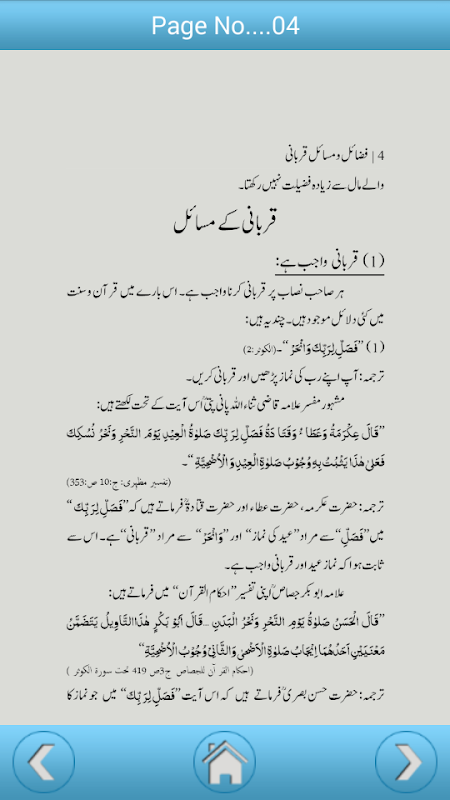 Page No....04
4 | فضائل و مسائل قربانی
والے مال سے زیادہ فضیلت نہیں رکھتا۔
قربانی کے مسائل
(1) قربانی واجب ہے:
ہر صاحب نصاب پر قربانی کرنا واجب ہے۔ اس بارے میں قرآن و سنت
میں کئی دلائل موجود ہیں۔ چند یہ ہیں:
(1) ”فَصَلِّ لِرَبِّكَ وَانْحَرْ“۔(الکوثر:2)
ترجمہ: آپ اپنے رب کی نماز پڑھیں اور قربانی کریں۔
مشہور مفسر علامہ قاضی ثناء اللہ پانی پتیؒ اس آیت کے تحت لکھتے ہیں:
”قَالَ عِكْرَمَةُ وَعَطَاءُ وَقَتَادَةُ فَصَلِّ لِرَبِّكَ صَلٰوةُ الْعِيْدِ يَوْمَ النَّحْرِ وَنَحْرُ نُسُكِكَ
فَعَلىٰ هٰذَا يَثْبُتُ بِهٖ وُجُوْبُ صَلٰوةِ الْعِيْدِ وَالْاُضْحِيَّةِ“۔
(تفسیر مظہری: ج:10 ص:353)
ترجمہ: حضرت عکرمہ، حضرت عطاء اور حضرت قتادہؒ فرماتے ہیں کہ ”فَصَلِّ لِرَبِّكَ“
میں ”فَصَلِّ“ سے مراد ”عید کی نماز“ اور ”وَانْحَرْ“ سے مراد ”قربانی“ ہے۔ اس سے
ثابت ہوا کہ نماز عید اور قربانی واجب ہے۔
علامہ ابو بکر جصاصؒ اپنی تفسیر ”احکام القرآن“ میں فرماتے ہیں:
”قَالَ الْحَسَنُ صَلٰوةُ يَوْمِ النَّحْرِ وَنَحْرُ الْبَدَنِ ۔ قَالَ اَبُوْ بَكْرٍ هٰذَا التَّاوِيْلُ يَتَضَمَّنُ
مَعْنَيَيْنِ اَحَدُهُمَا اِيْجَابُ صَلٰوةِ الْاَضْحىٰ وَالثَّانِيْ وُجُوْبُ الْاُضْحِيَّةِ“
(احکام القرآن للجصاص ج3ص 419 تحت سورۃ الکوثر )
ترجمہ: حضرت حسن بصریؒ فرماتے ہیں کہ اس آیت ”فَصَلِّ لِرَبِّكَ“ میں جو نماز کا